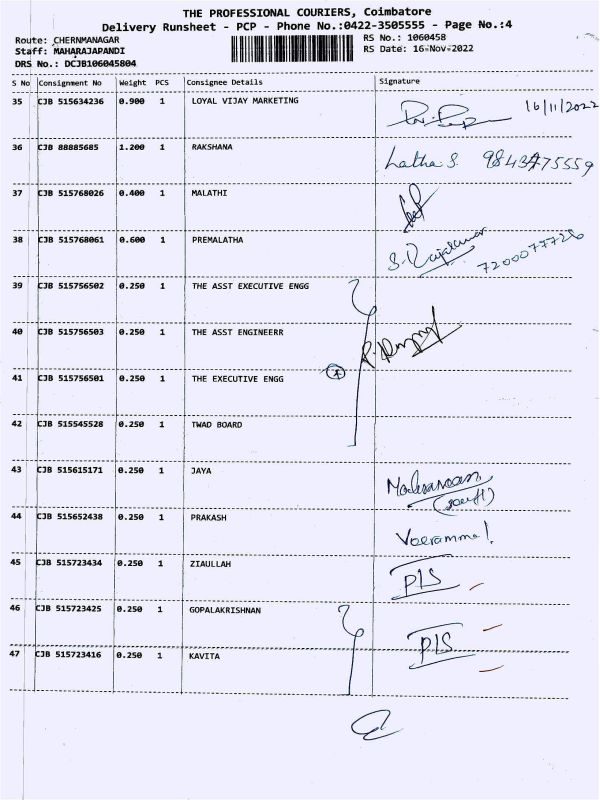 THE PROFESSIONAL COURIERS, Coimbatore
Delivery Runsheet - PCP - Phone No.:0422-3505555 - Page No.:4
Route: CHERNMANAGAR RS No.: 1060458
Staff: MAHARAJAPANDI RS Date: 16-Nov-2022
DRS No.: DCJB106045804
S No Consignment No Weight PCS Consignee Details Signature
35 CJB 515634236 0.900 1 LOYAL VIJAY MARKETING 16/11/2022
36 CJB 88885685 1.200 1 RAKSHANA Latha S. 9843775559
37 CJB 515768026 0.400 1 MALATHI
38 CJB 515768061 0.600 1 PREMALATHA S. Rajakumar 7200077726
39 CJB 515756502 0.250 1 THE ASST EXECUTIVE ENGG
40 CJB 515756503 0.250 1 THE ASST ENGINEERR
41 CJB 515756501 0.250 1 THE EXECUTIVE ENGG
42 CJB 515545528 0.250 1 TWAD BOARD
43 CJB 515615171 0.250 1 JAYA
44 CJB 515652438 0.250 1 PRAKASH
45 CJB 515723434 0.250 1 ZIAULLAH P/S
46 CJB 515723425 0.250 1 GOPALAKRISHNAN P/S
47 CJB 515723416 0.250 1 KAVITA